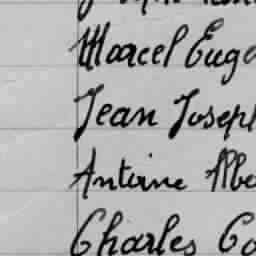 Marcel Euge
Jean Joseph
Antoine Albe
Charles